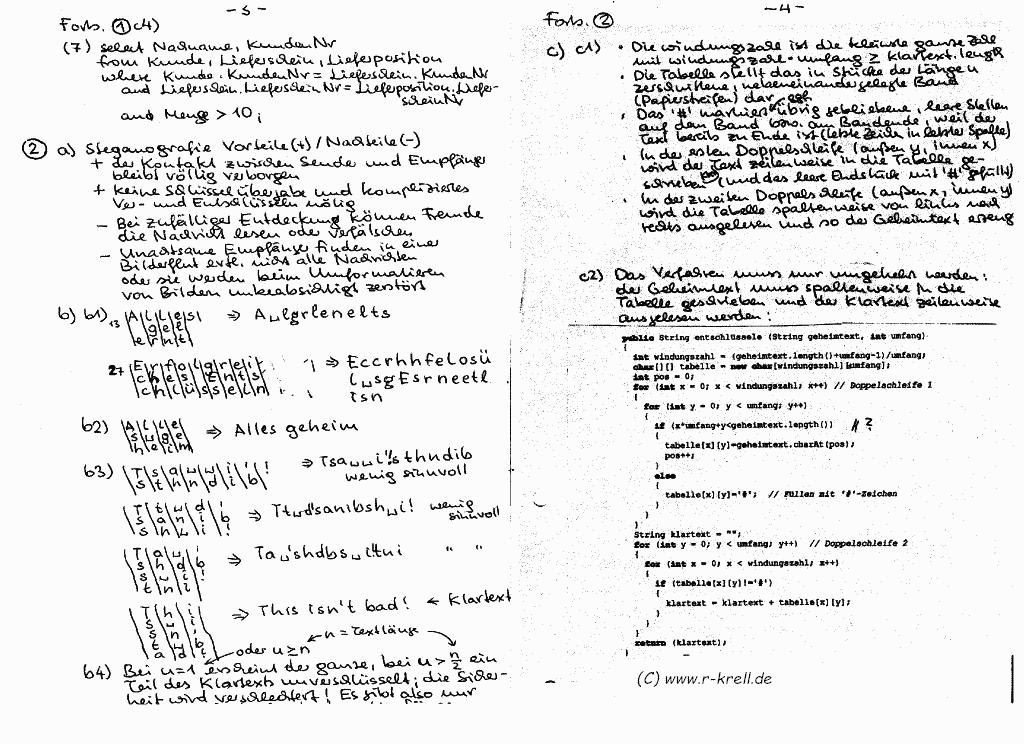 - 3 -
Forts. ① c4)
(7) select Nachname, KundenNr
from Kunde, Lieferschein, Lieferposition
where Kunde.KundenNr = Lieferschein.KundenNr
and Lieferschein.LieferscheinNr = Lieferposition.Liefer-
scheinNr
and Menge > 10;
② a) Steganografie Vorteile (+) / Nachteile (-)
+ der Kontakt zwischen Sender und Empfänger
bleibt völlig verborgen
+ keine Schlüsselübergabe und kompliziertes
Ver- und Entschlüsseln nötig
- Bei zufälliger Entdeckung können Fremde
die Nachricht lesen oder verfälschen
- Unachtsame Empfänger finden in einer
Bilderflut evtl. nicht alle Nachrichten
oder sie werden beim Umformatieren
von Bildern unbeabsichtigt zerstört
b) b1) 13 A l l e s
g e l
e r n t
⇒ A␣lgrlenelts
27 E r f o l g r e i
c h e s E n t s
c h l ü s s e l n
⇒ EccrhhfeLosü
l␣sgEsrneetl
isn
b2) A l l e
s g e
h e i m
⇒ Alles geheim
b3) T s a ␣ ␣ i ' !
s t h n d i b
⇒ Tsa␣␣i'!sthndib
wenig sinnvoll
T t ␣ d '
s a n i b
s h ␣ i !
⇒ Tt␣d'sanibsh␣i! wenig
sinnvoll
⇒ Ta␣'shdbs␣i!tni " "
⇒ This isn't bad! ← Klartext
n = Textlänge
oder u ≥ n
b4) Bei u=1 erscheint der ganze, bei u > n/2 ein
Teil des Klartexts unverschlüsselt; die Sicher-
heit wird verschlechtert! Es gibt also nur
- 4 -
Forts. ②
c) c1) • Die windungszahl ist die kleinste ganze Zahl
mit windungszahl · umfang ≥ klartext.length
• Die Tabelle stellt das in Stücke der Länge u
zerschnittene, nebeneinandergelegte Band
(Papierstreifen) dar.
• Das '#' markiert ggf. übrig gebliebene, leere Stellen
auf dem Band bzw. am Bandende, weil der
Text bereits zu Ende ist (letzte Zeichen in letzter Spalte)
• In der ersten Doppelschleife (außen y, innen x)
wird der Text zeilenweise in die Tabelle ge-
schrieben (und das leere Endstück mit '#' gefüllt)
• In der zweiten Doppelschleife (außen x, innen y)
wird die Tabelle spaltenweise von links nach
rechts ausgelesen und so der Geheimtext erzeugt
c2) Das Verfahren muss nur umgekehrt werden:
der Geheimtext muss spaltenweise in die
Tabelle geschrieben und der Klartext zeilenweise
ausgelesen werden:
public String entschlüssele (String geheimtext, int umfang)
{
int windungszahl = (geheimtext.length()+umfang-1)/umfang;
char[][] tabelle = new char[windungszahl][umfang];
int pos = 0;
for (int x = 0; x < windungszahl; x++) // Doppelschleife 1
{
for (int y = 0; y < umfang; y++)
{
if (x*umfang+y<geheimtext.length())
{
tabelle[x][y]=geheimtext.charAt(pos);
pos++;
}
else
{
tabelle[x][y]='#'; // Füllen mit '#'-Zeichen
}
}
}
String klartext = "";
for (int y = 0; y < umfang; y++) // Doppelschleife 2
{
for (int x = 0; x < windungszahl; x++)
{
if (tabelle[x][y]!='#')
{
klartext = klartext + tabelle[x][y];
}
}
}
return (klartext);
}
(C) www.r-krell.de